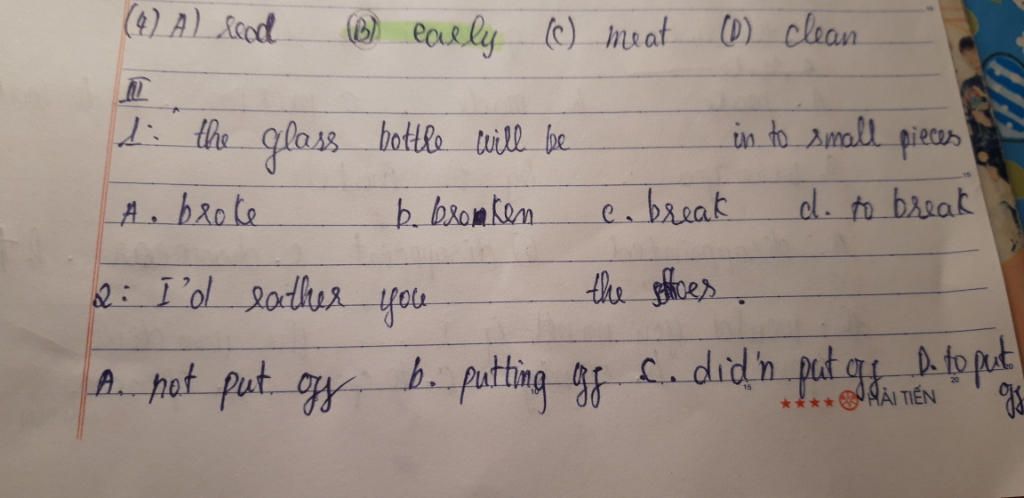 (4) A) read (B) early (C) meat (D) clean
III
1: the glass bottle will be in to small pieces
A. broke b. broken c. break d. to break
2: I'd rather you the shoes.
A. not put off b. putting off c. did'n put off D. to put off
HẢI TIẾN